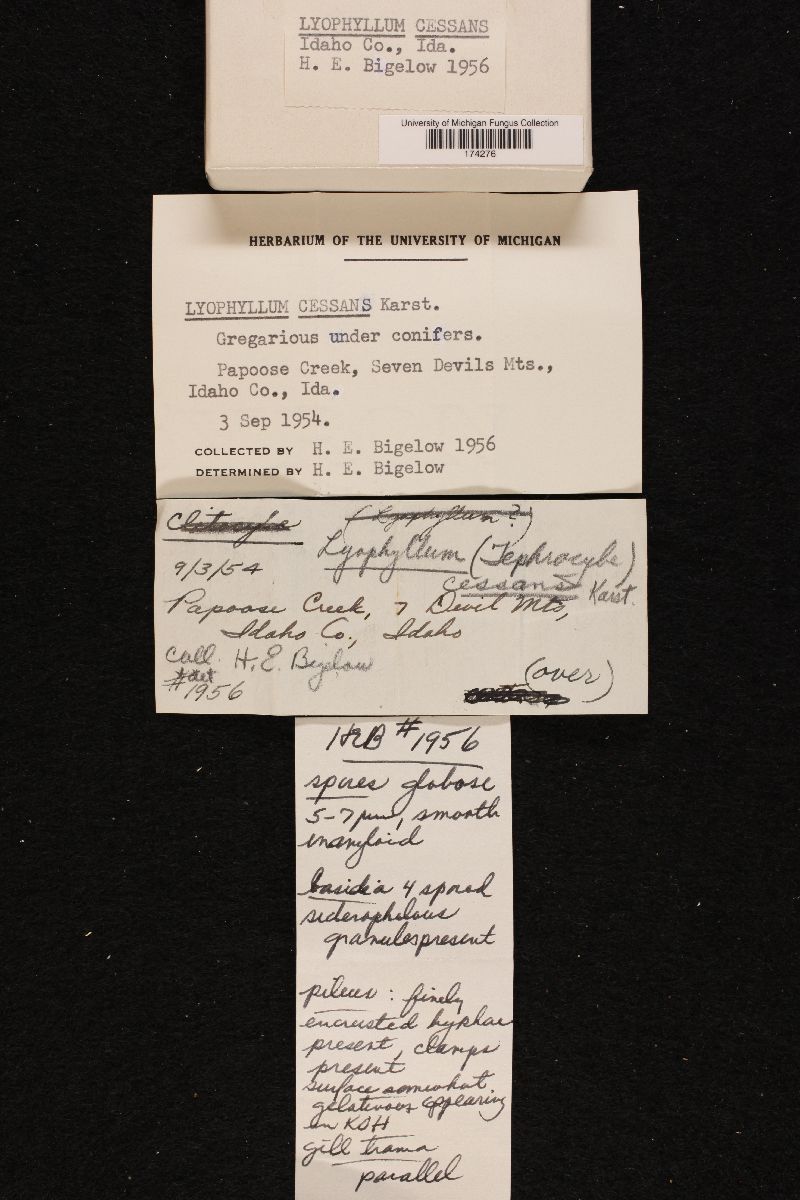 LYOPHYLLUM CESSANS
Idaho Co., Ida.
H. E. Bigelow 1956
University of Michigan Fungus Collection
174276
HERBARIUM OF THE UNIVERSITY OF MICHIGAN
LYOPHYLLUM CESSANS Karst.
Gregarious under conifers.
Papoose Creek, Seven Devils Mts.,
Idaho Co., Ida.
3 Sep 1954.
COLLECTED BY H. E. Bigelow 1956
DETERMINED BY H. E. Bigelow
Clitocybe (Lyophyllum?)
Lyophyllum (Tephrocybe)
9/3/54
cessans Karst.
Papoose Creek, 7 Devil Mts,
Idaho Co., Idaho
Coll. H. E. Bigelow
+ det
#1956
(over)
HEB #1956
spores globose
5-7 µm, smooth
inamyloid
basidia 4 spored
siderophilous
granules present
pileus : finely
encrusted hyphae
present, clamps
present
surface somewhat
gelatinous appearing
in KOH
gill trama
parallel